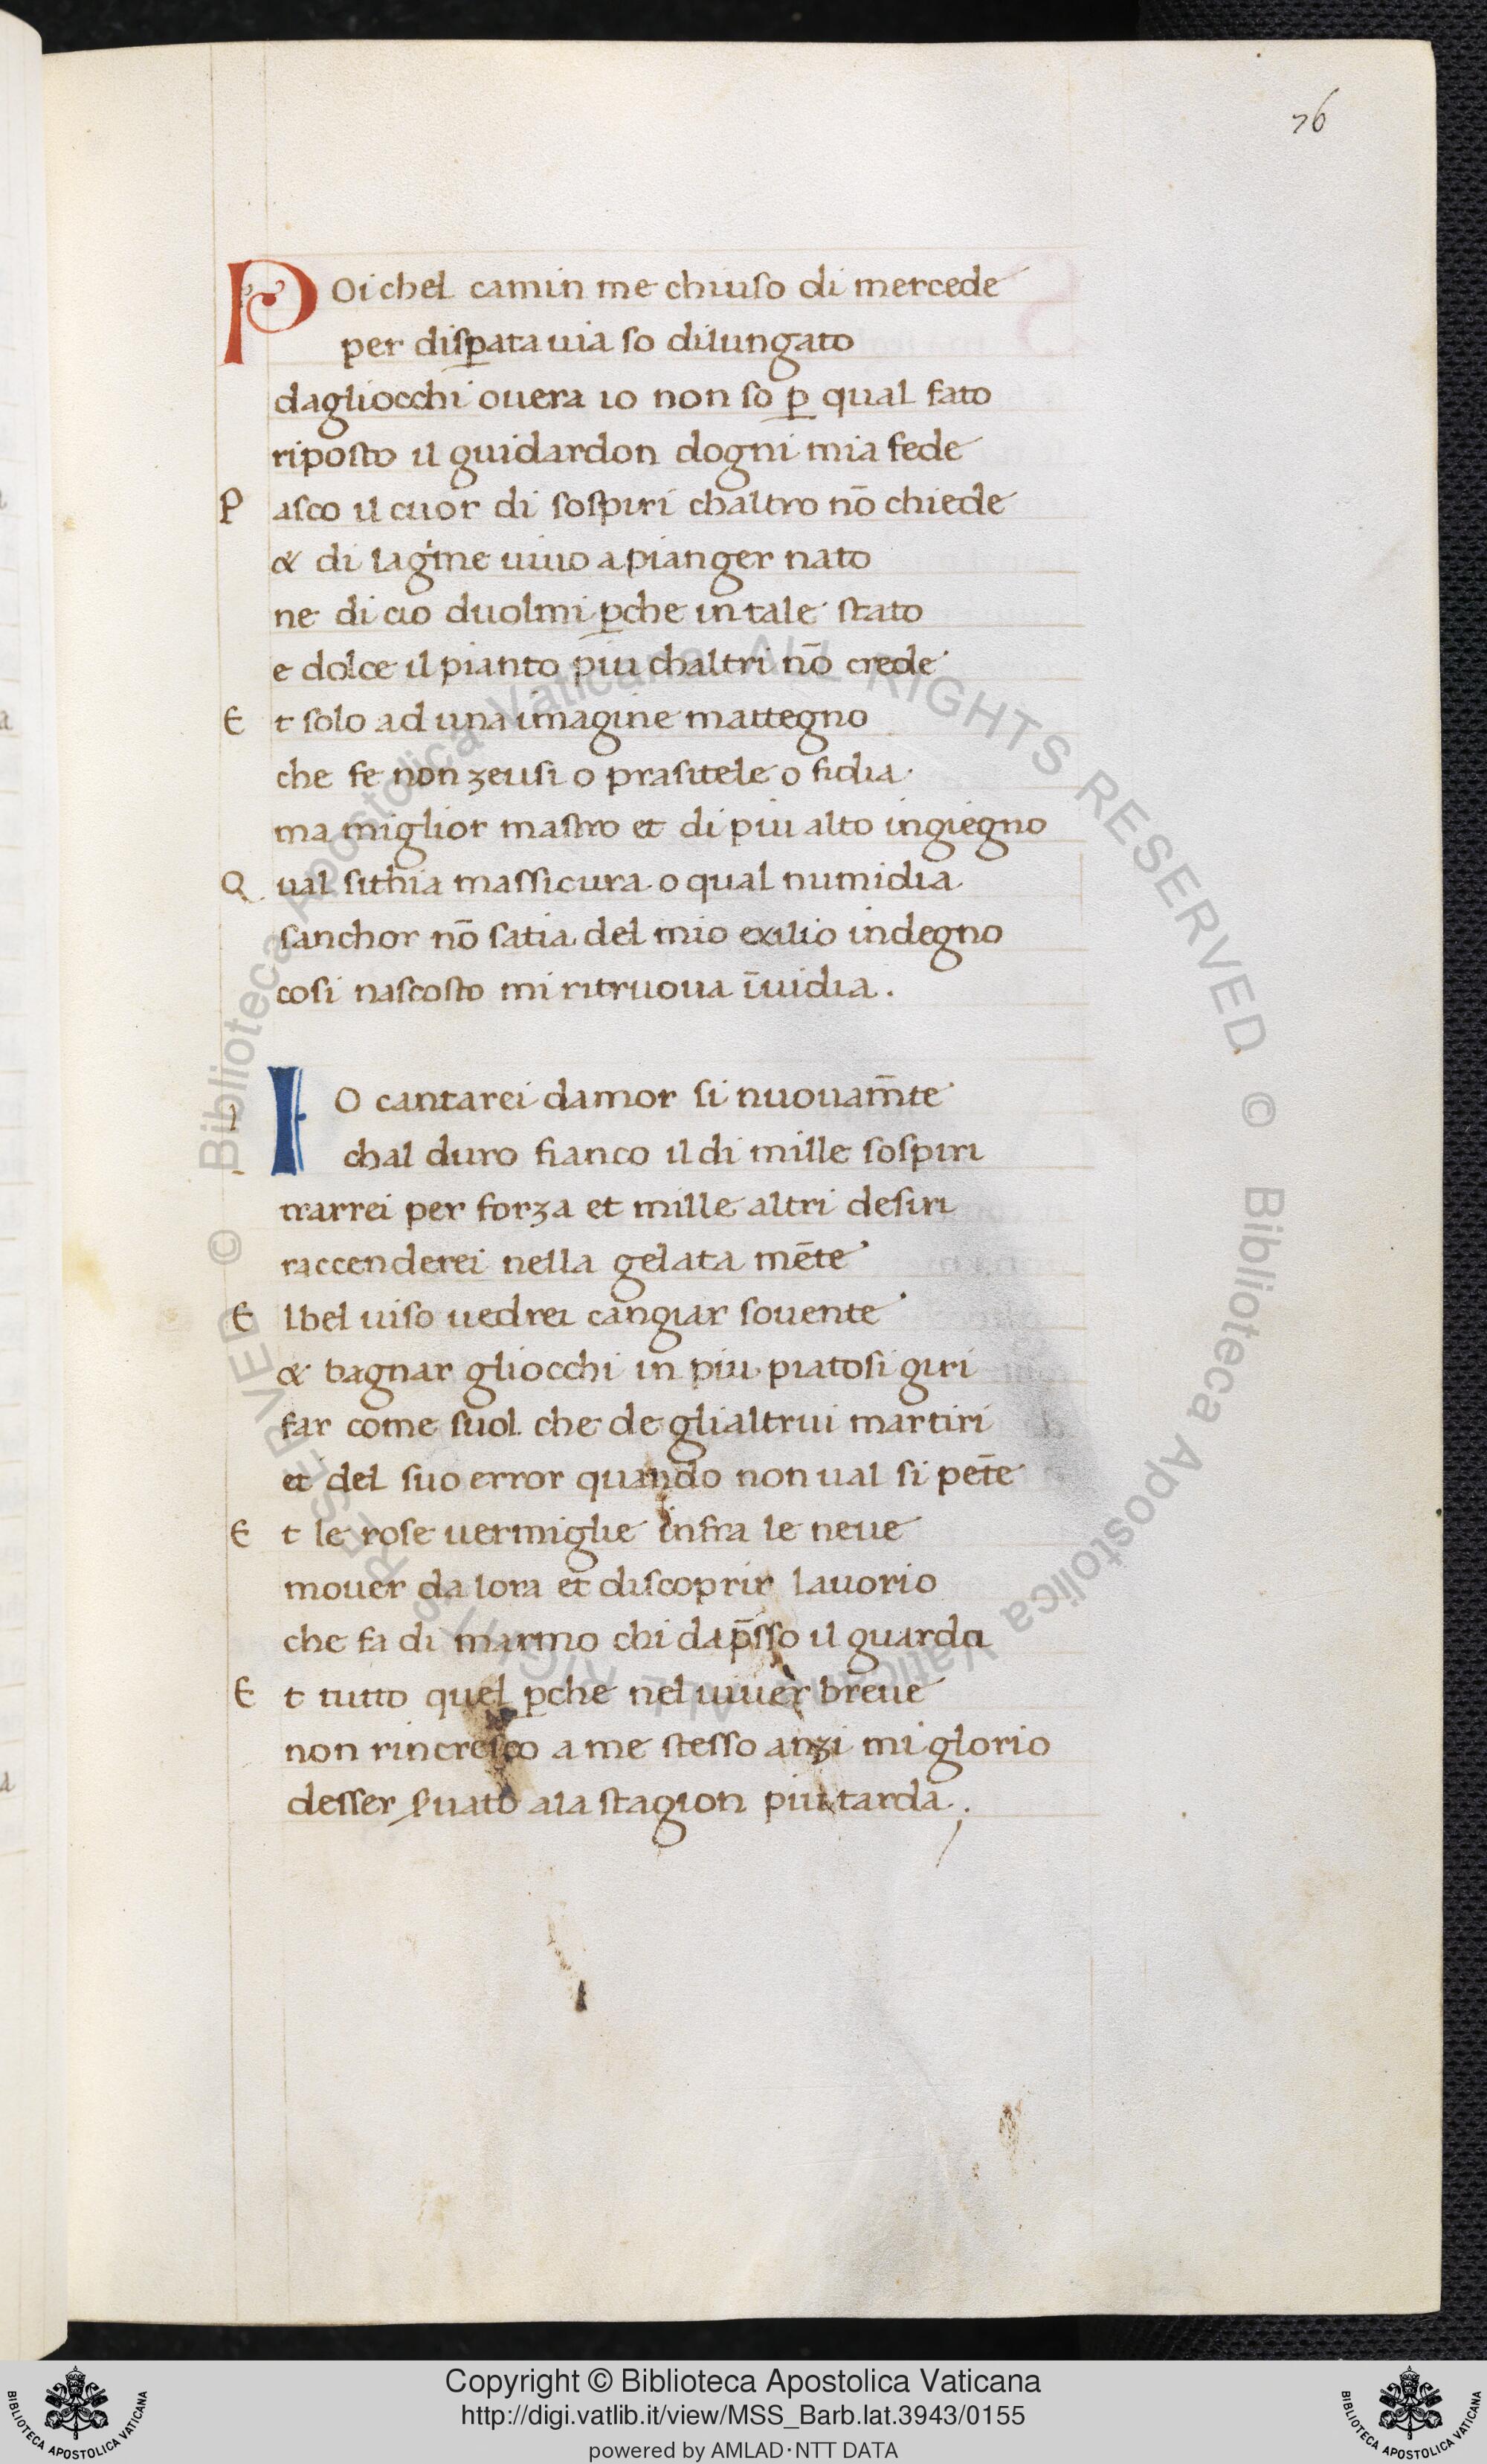 76
POi chel camin me chiuso di mercede
per disꝑata uia so dilungato
dagliocchi ouera io non so ꝑ qual fato
riposto il guidardon dogni mia fede
P asco il cuor di sospiri chaltro nō chiede
& di lagime uiuo a pianger nato
ne di cio duolmi ꝑche in tale stato
e dolce il pianto piu chaltri nō crede
E t solo ad una imagine mattegno
che fe non zeusi o prasitele o fidia
ma miglior mastro et di piu alto ingiegno
Q ual sithia massicura o qual numidia
sanchor nō satia del mio exilio indegno
cosi nascosto mi ritruoua īuidia.
IO cantarei damor si nuouam̄te
chal duro fianco il di mille sospiri
trarrei per forza et mille altri desiri
raccenderei nella gelata mēte
E lbel uiso uedrei cangiar souente
& bagnar gliocchi in piu piatosi giri
far come suol che de glialtrui martiri
et del suo error quando non ual si pēte
E t le rose uermiglie infra le neue
mouer da lora et discoprir lauorio
che fa di marmo chi dap̄sso il guarda
E t tutto quel ꝑche nel uiuer breue
non rincresco a me stesso anzi mi glorio
desser ẜuato ala stagion piu tarda.
© Biblioteca Apostolica Vaticana ALL RIGHTS RESERVED © Biblioteca Apostolica Vaticana ALL RIGHTS RESERVED
Copyright © Biblioteca Apostolica Vaticana
http://digi.vatlib.it/view/MSS_Barb.lat.3943/0155
powered by AMLAD·NTT DATA
BIBLIOTECA APOSTOLICA VATICANA
BIBLIOTECA APOSTOLICA VATICANA